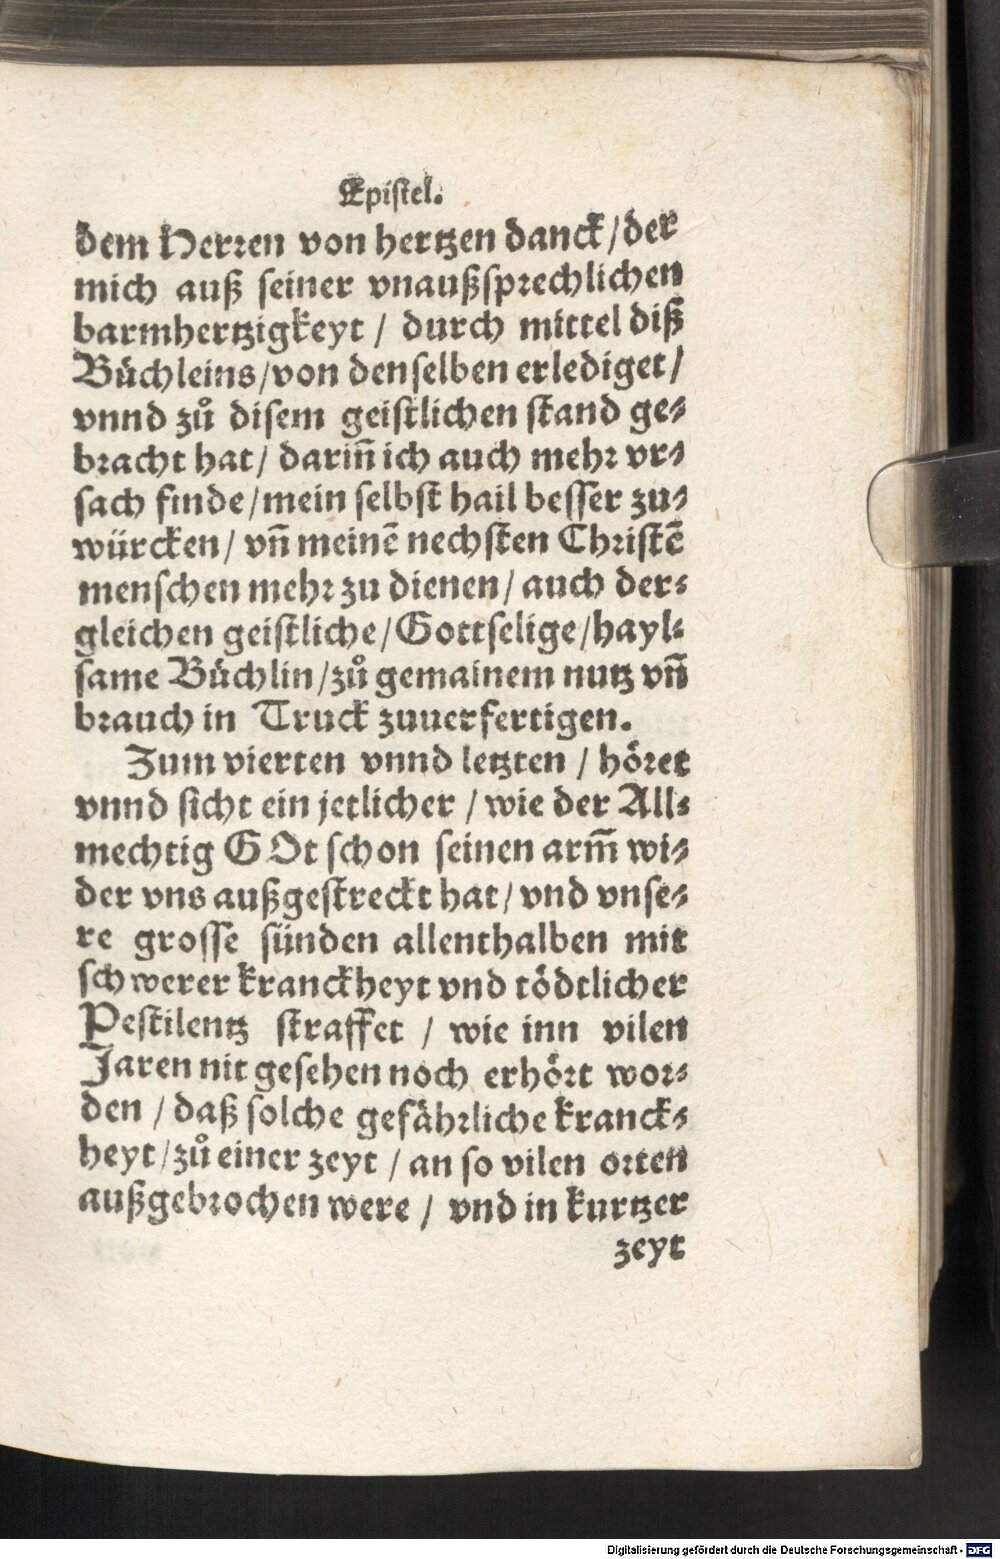 Epistel.
dem Herren von hertzen danck/der
mich auß seiner vnaußsprechlichen
barmhertzigkeyt / durch mittel diß
Bůchleins/von denselben erlediget/
vnnd zů disem geistlichen stand ge⸗
bracht hat/ dariñ ich auch mehr vr⸗
sach finde/mein selbst hail besser zu⸗
würcken/ vñ meinē nechsten Christē
menschen mehr zu dienen/ auch der⸗
gleichen geistliche/Gottselige/hayl⸗
same Bůchlin/zů gemainem nutz vñ
brauch in Truck zuuerfertigen.
Zum vierten vnnd letzten / höret
vnnd sicht ein jetlicher / wie der All⸗
mechtig GOt schon seinen arm̃ wi⸗
der vns außgestreckt hat/ vnd vnse⸗
re grosse sünden allenthalben mit
schwerer kranckheyt vnd tödtlicher
Pestilentz straffet / wie inn vilen
Jaren nit gesehen noch erhört wor⸗
den / daß solche gefährliche kranck⸗
heyt/zů einer zeyt / an so vilen orten
außgebrochen were / vnd in kurtzer
zeyt
Digitalisierung gefördert durch die Deutsche Forschungsgemeinschaft - DFG